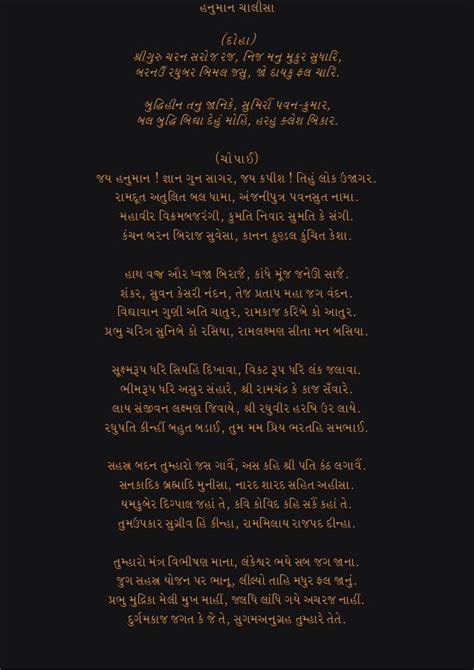 હનુમાન ચાલીસા
(દોહા)
શ્રીગુરુ ચરન સરોજ રજ, નિજ મનુ મુકુર સુધારિ,
બરનઉઁ રઘુબર બિમલ જસુ, જો દાયકુ ફલ ચારિ.
બુદ્ધિહીન તનુ જાનિકે, સુમિરૌં પવન-કુમાર,
બલ બુદ્ધિ બિઘા દેહું મોહિં, હરહુ ક્લેશ બિકાર.
(ચોપાઈ)
જય હનુમાન ! જ્ઞાન ગુન સાગર, જય કપીશ ! તિહું લોક ઉજાગર.
રામદૂત અતુલિત બલ ધામા, અંજનીપુત્ર પવનસુત નામા.
મહાવીર વિક્રમબજરંગી, કુમતિ નિવાર સુમતિ કે સંગી.
કંચન બરન બિરાજ સુવેસા, કાનન કુણ્ડલ કુંચિત કેશા.
હાથ વજ્ર ઔર ધ્વજા બિરાજૈ, કાંધે મૂંજ જનેઊ સાજૈ.
શંકર, સુવન કેસરી નંદન, તેજ પ્રતાપ મહા જગ વંદન.
વિઘાવાન ગુણી અતિ ચાતુર, રામકાજ કરિબે કો આતુર.
પ્રભુ ચરિત્ર સુનિબે કો રસિયા, રામલક્ષ્મણ સીતા મન બસિયા.
સૂક્ષ્મરૂપ ધરિ સિયહિં દિખાવા, વિકટ રૂપ ધરિ લંક જલાવા.
ભીમરૂપ ધરિ અસુર સંહારે, શ્રી રામચંદ્ર કે કાજ સઁવારે.
લાય સંજીવન લક્ષ્મણ જિવાયે, શ્રી રઘુવીર હરષિ ઉર લાયે.
રઘુપતિ કીન્હીં બહુત બડાઈ, તુમ મમ પ્રિય ભરતહિ સમભાઈ.
સહસ્ત્ર બદન તુમ્હારો જસ ગાવૈં, અસ કહિ શ્રી પતિ કંઠ લગાવૈં.
સનકાદિક બ્રહ્માદિ મુનીસા, નારદ શારદ સહિત અહીસા.
યમકુબેર દિગ્પાલ જહાં તે, કવિ કોવિદ કહિ સકૈં કહાં તે.
તુમઉપકાર સુગ્રીવ હિં કીન્હા, રામમિલાય રાજપદ દીન્હા.
તુમ્હારો મંત્ર વિભીષણ માના, લંકેશ્વર ભયે સબ જગ જાના.
જુગ સહસ્ત્ર યોજન પર ભાનૂ, લીલ્યો તાહિ મધુર ફલ જાનું.
પ્રભુ મુદ્રિકા મેલી મુખ માહીં, જલધિ લાંધિ ગયે અચરજ નાહીં.
દુર્ગમકાજ જગત કે જે તે, સુગમઅનુગ્રહ તુમ્હારે તેતે.